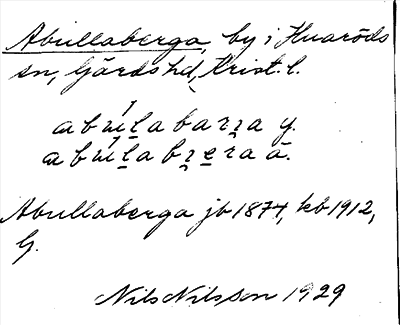 Abullaberga, by i Huaröds
sn, Gärds hd, Krist. l.
abu̯l̯abar̯a y.
abu̯l̯abr̯e̯r̯a ä.
Abullaberga jb 1874, kb 1912,
G.
Nils Nilsson 1929